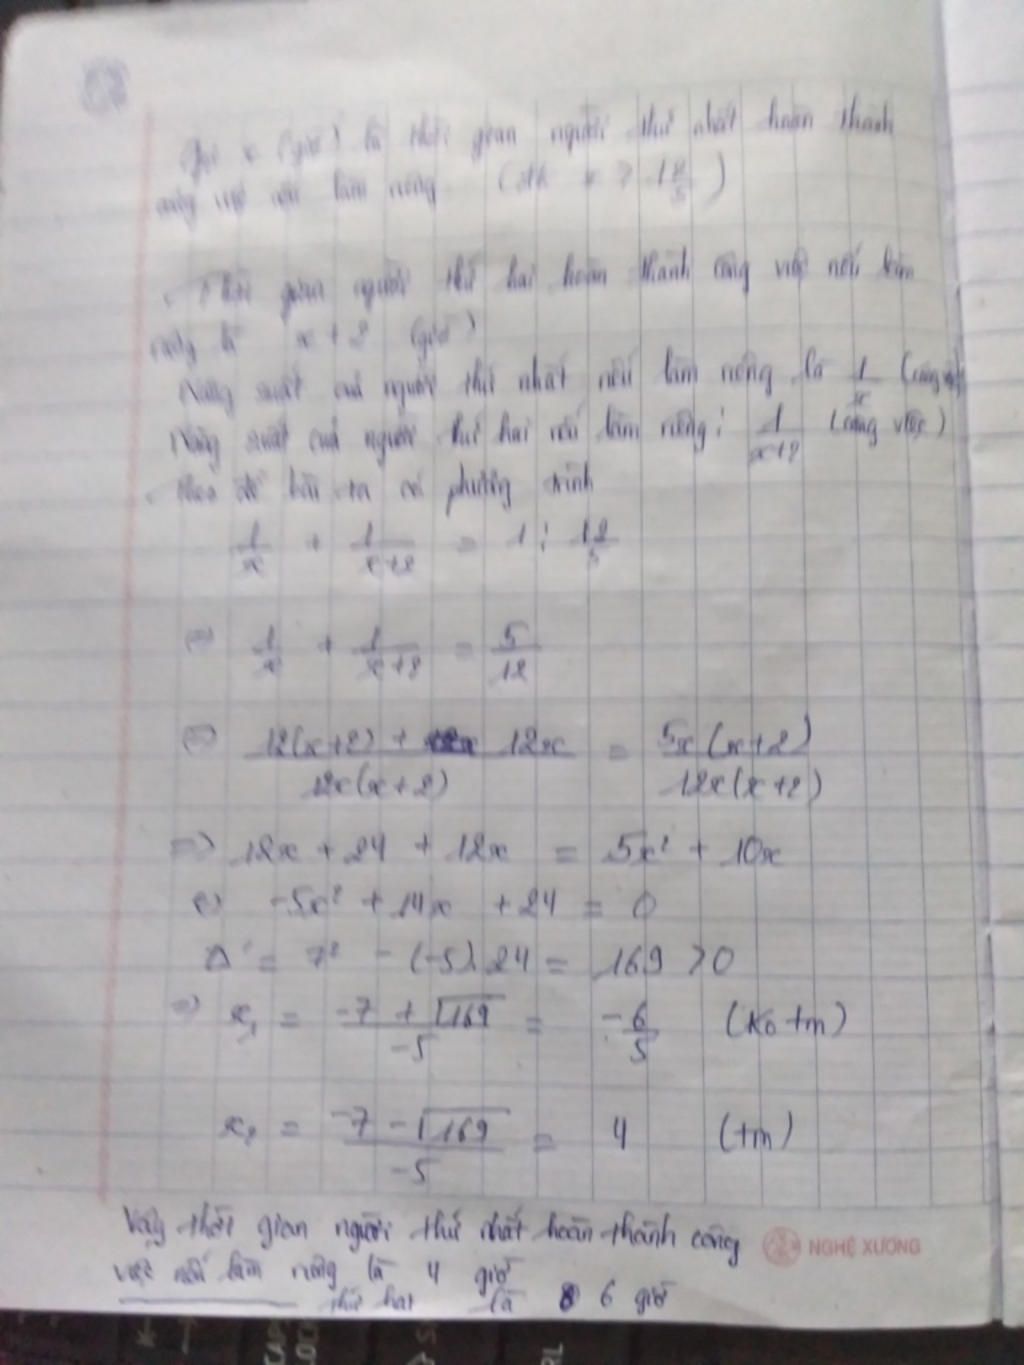 Gọi x (giờ) là thời gian người thứ nhất hoàn thành
công việc nếu làm riêng (đk x > 12/5)
Thời gian người thứ hai hoàn thành công việc nếu làm
riêng là x + 2 (giờ)
Năng suất của người thứ nhất nếu làm riêng là 1/x (công việc)
Năng suất của người thứ hai nếu làm riêng: 1/(x+2) (công việc)
theo đề bài ta có phương trình
1/x + 1/(x+2) = 1 : 12/5
<=> 1/x + 1/(x+2) = 5/12
<=> (12(x+2) + 12x)/(12x(x+2)) = 5x(x+2)/(12x(x+2))
=> 12x + 24 + 12x = 5x² + 10x
<=> -5x² + 14x + 24 = 0
Δ' = 7² - (-5).24 = 169 > 0
=> x₁ = (-7 + √169)/-5 = -6/5 (ko tm)
x₂ = (-7 - √169)/-5 = 4 (tm)
Vậy thời gian người thứ nhất hoàn thành công
việc nếu làm riêng là 4 giờ
thứ hai là 6 giờ
NGHỆ XƯƠNG